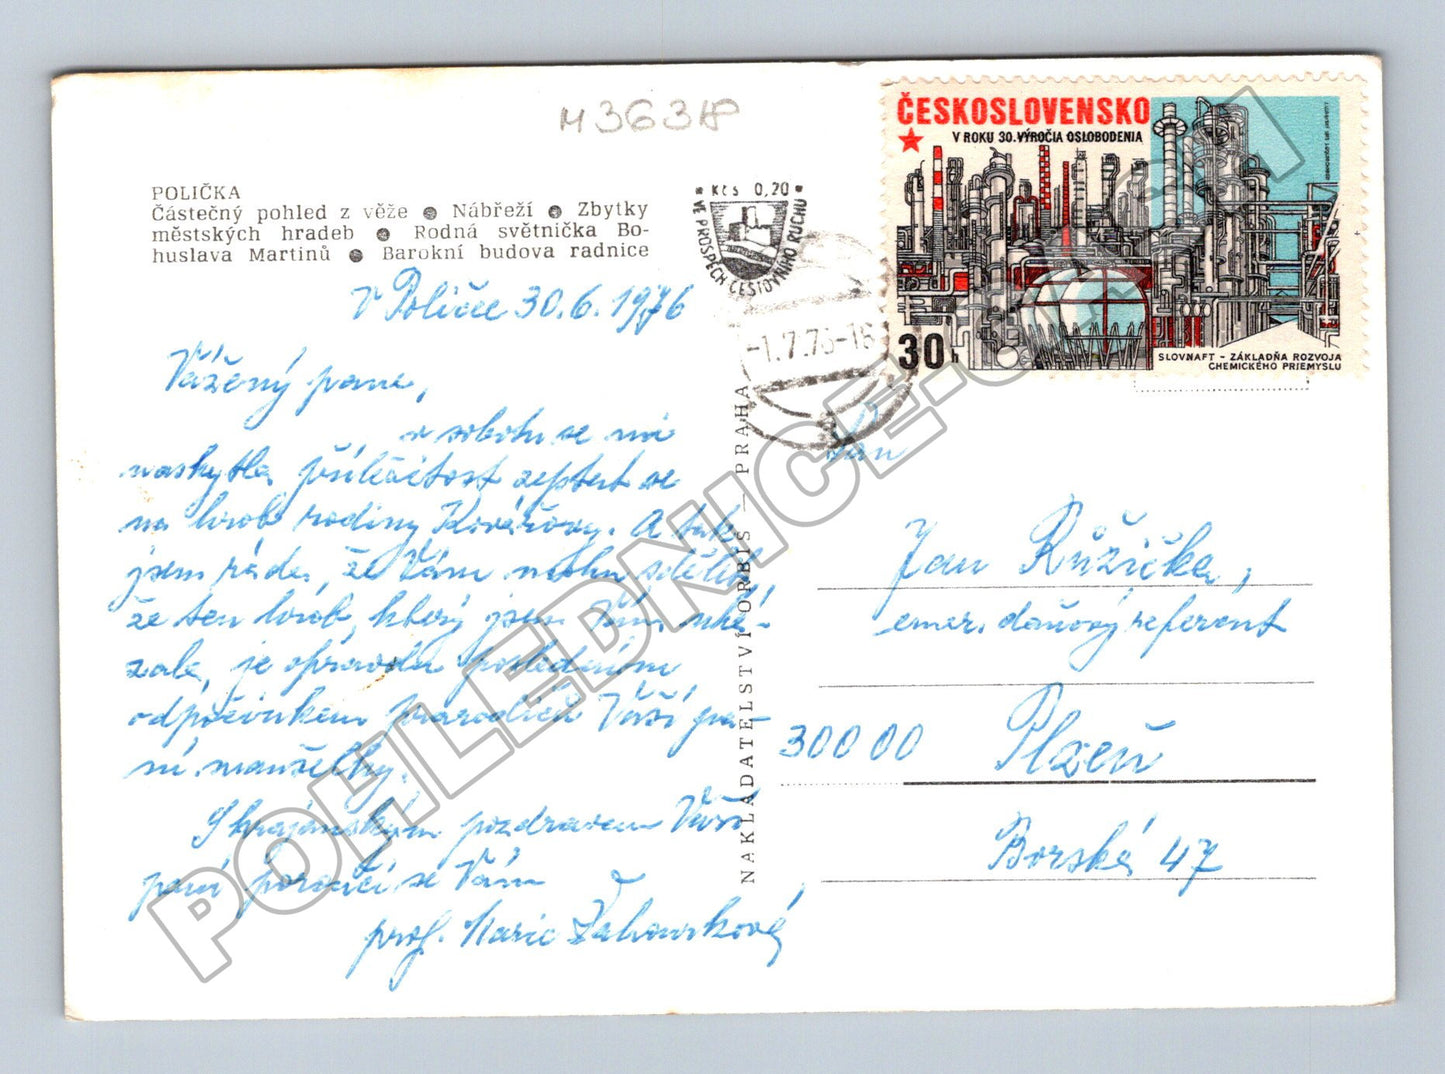 M 3631P
POLIČKA
Částečný pohled z věže ● Nábřeží ● Zbytky
městských hradeb ● Rodná světnička Bo-
huslava Martinů ● Barokní budova radnice
V Poličce 30.6.1976
Vážený pane,
v sobotu se mi
naskytla příležitost zeptat se
na hrob rodiny Kovářovy. A tak
jsem ráda, že Vám mohu sdělit,
že ten hrob, který jsem Vám uká-
zala, je opravdu posledním
odpočinkem prarodičů Vaší pa-
ní manželky.
S krajánským pozdravem Vaší
paní poroučí se Vám
prof. Marie
Kčs 0,20
VE PROSPĚCH CESTOVNÍHO RUCHU
-1.7.76-16
ČESKOSLOVENSKO
V ROKU 30. VÝROČIA OSLOBODENIA
30 h
SLOVNAFT - ZÁKLADŇA ROZVOJA
CHEMICKÉHO PRIEMYSLU
NAKLADATELSTVÍ ORBIS — PRAHA
Pan
Jan Růžička,
emer. daňový referent
30000 Plzeň
Borská 47
POHLEDNICE.CASH